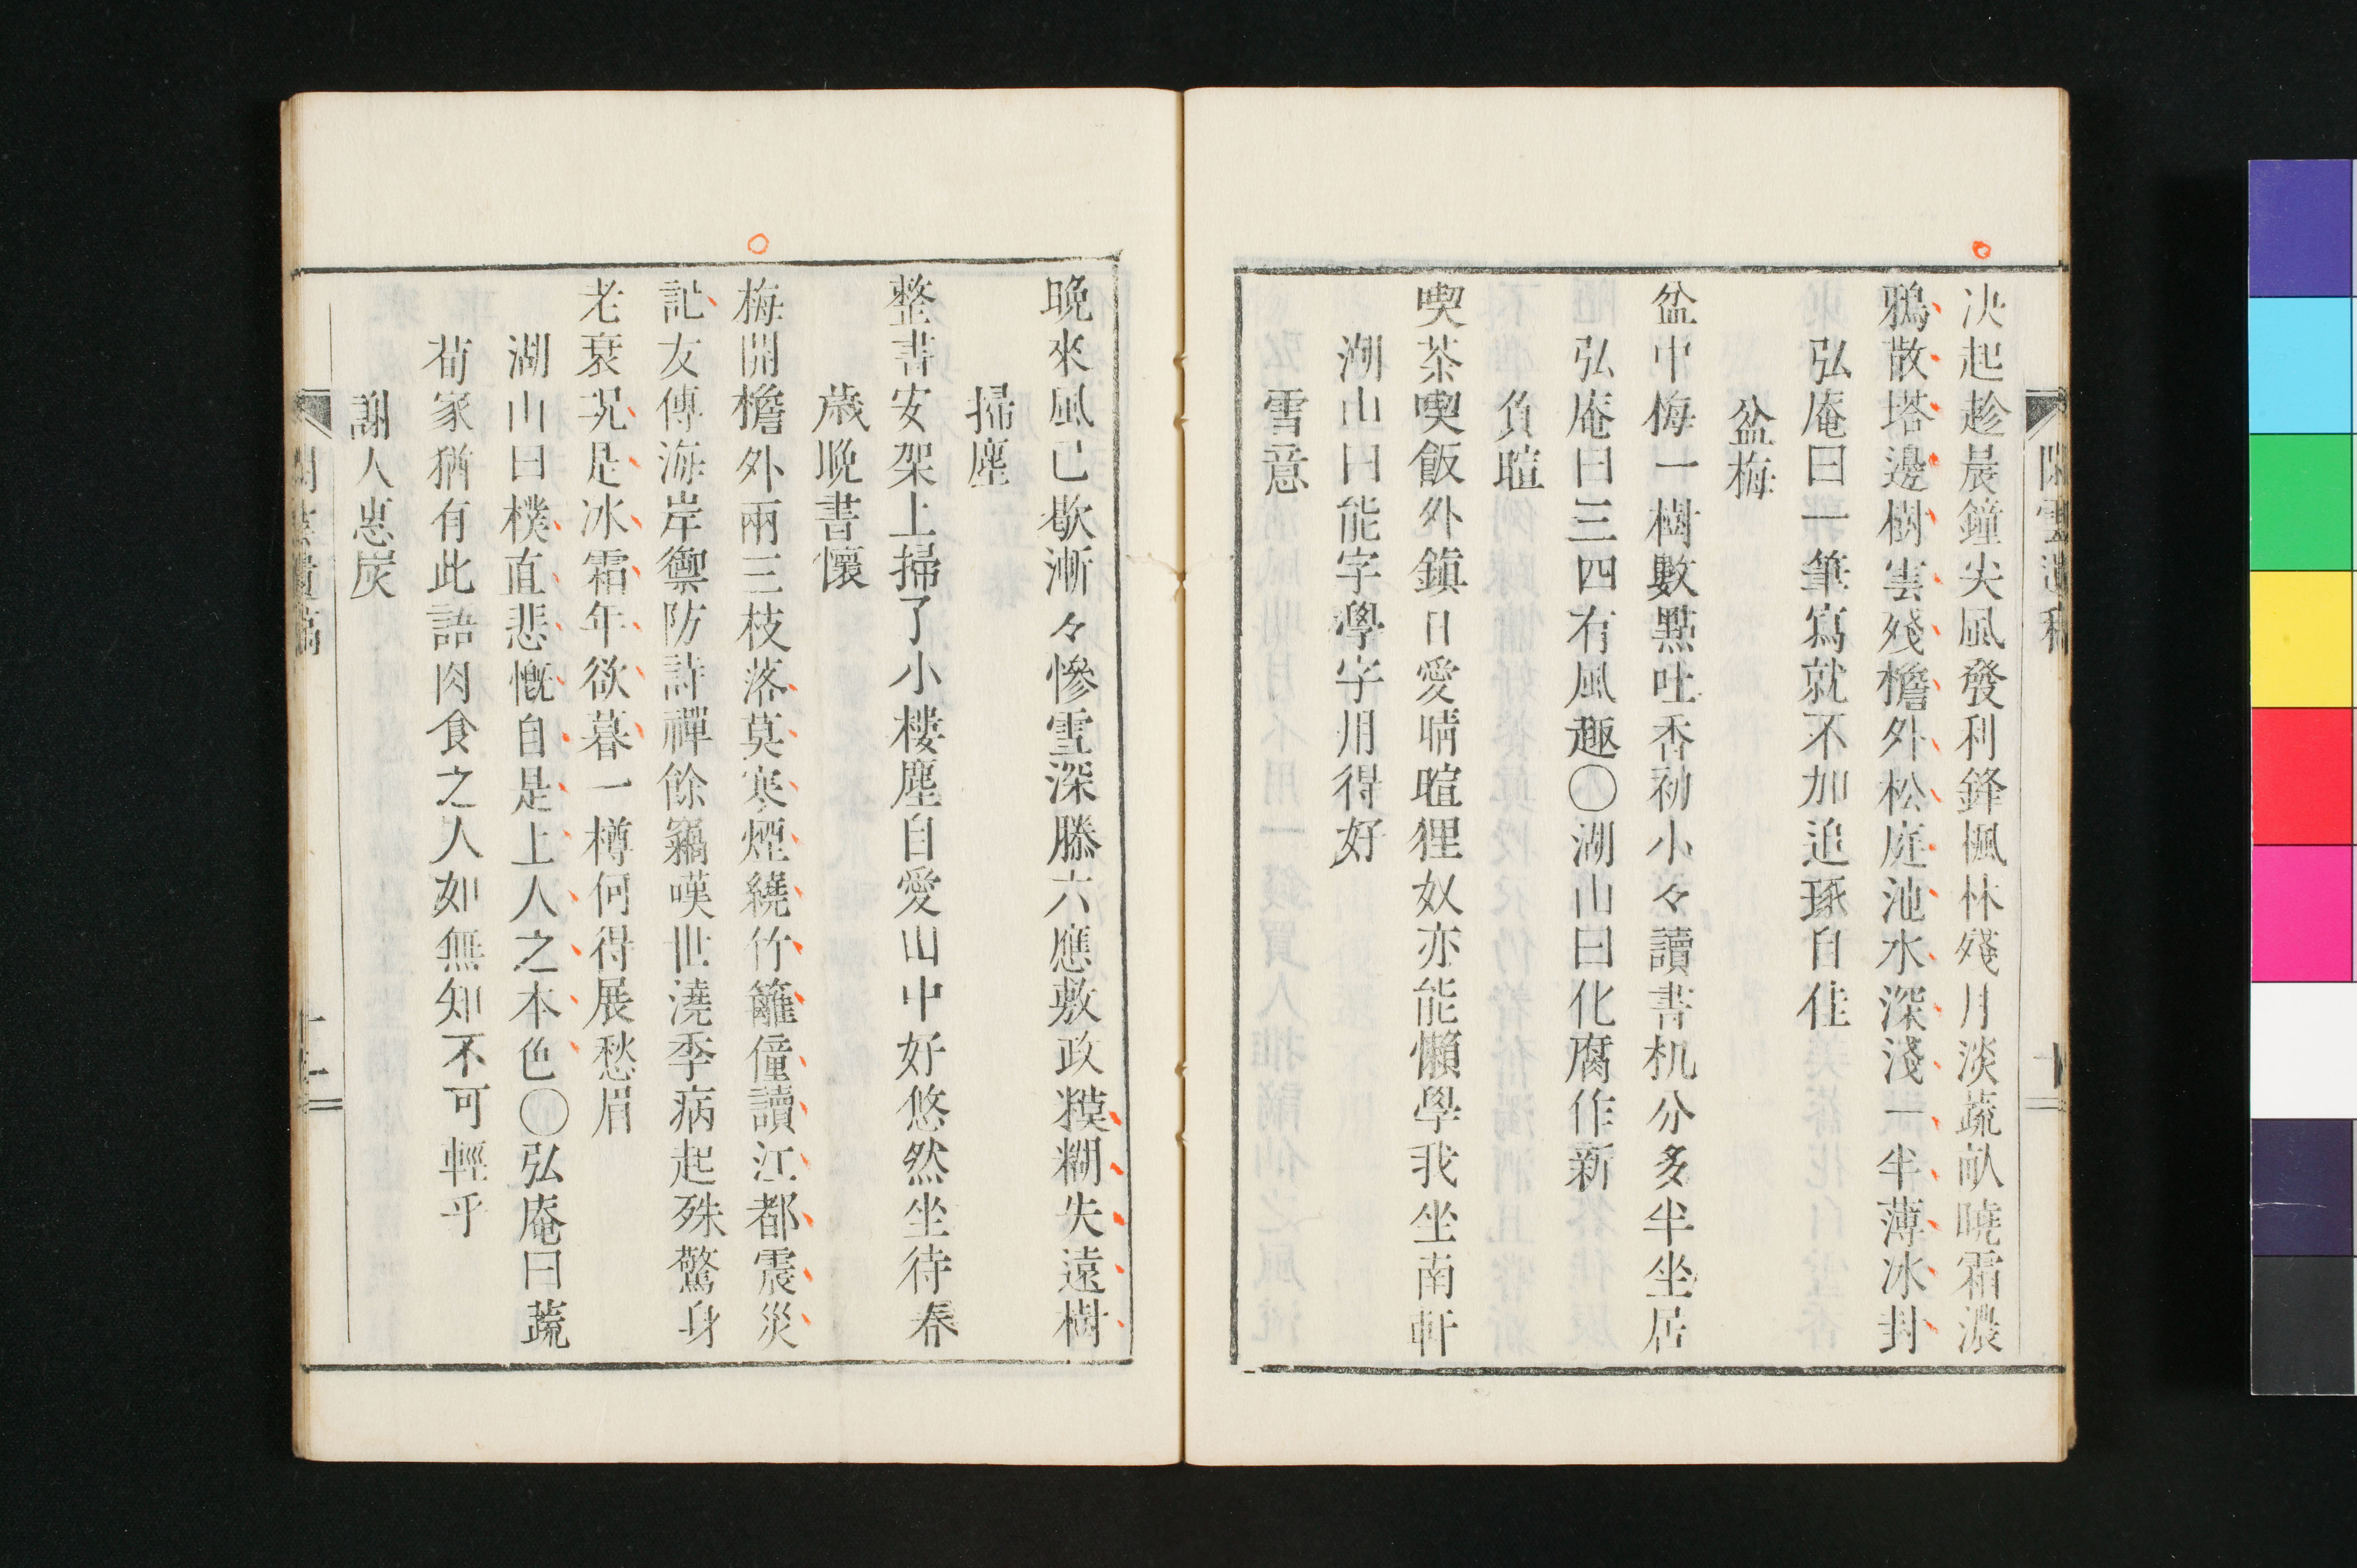 決起趁晨鐘尖風發利鋒楓林殘月淡蔬畝曉霜濃
鴉散塔邊樹雲殘檐外松庭池水深淺一半薄冰封
弘庵曰一筆寫就不加追琢自佳
盆梅
盆中梅一樹數點吐香初小々讀書机分多半坐居
弘庵曰三四有風趣〇湖山曰化腐作新
負暄
喫茶喫飯外鎮日愛晴暄狸奴亦能懶學我坐南軒
湖山曰能字學字用得好
雪意
晚來風已歇漸々慘雪深滕六應敷政糢糊失遠樹
掃塵
整書安架上掃了小樓塵自愛山中好悠然坐待春
歲晚書懷
梅開檐外兩三枝落莫寒煙繞竹籬僮讀江都震災
記友傳海岸禦防詩禪餘竊嘆世澆季病起殊驚身
老衰况是冰霜年欲暮一樽何得展愁眉
湖山曰樸直悲慨自是上人之本色〇弘庵曰蔬
荀家猶有此語肉食之人如無知不可輕乎
謝人恵炭